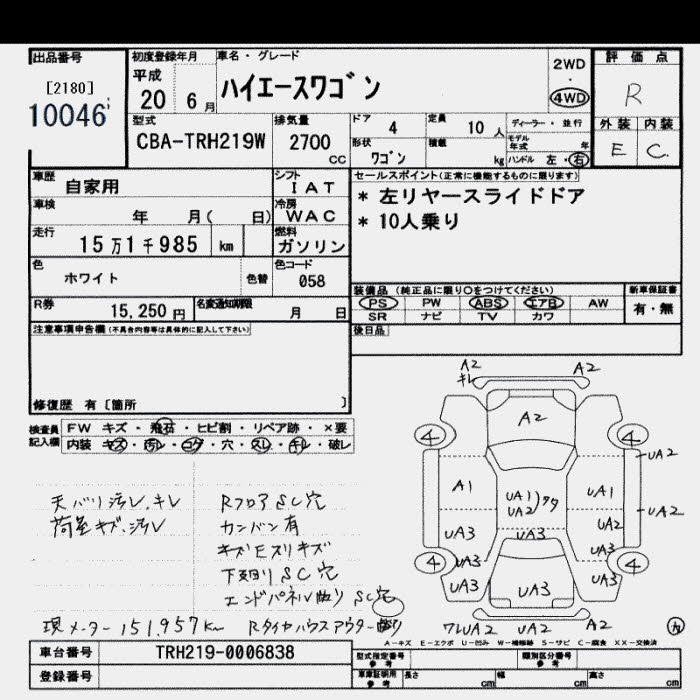 出品番号
[2180]
10046
初度登録年月
平成
20 6月
車名・グレード
ハイエースワゴン
2WD
・
4WD
評価点
R
外装 内装
E C.
型式
CBA-TRH219W
排気量
2700
cc
ドア 4
定員 10人
ディーラー・並行
形状 ワゴン
積載 kg
モデル年式 年
ハンドル 左・右
車歴 自家用
シフト IAT
車検 年 月( 日)
冷房 WAC
走行 15万1千985 km
燃料 ガソリン
色 ホワイト
色替
色コード 058
R券 15,250円
名変通知期限 月 日
セールスポイント(正常に機能するものに限ります)
* 左リヤースライドドア
* 10人乗り
装備品 (純正品に限り○をつけてください)
PS PW ABS エアB AW
SR ナビ TV カワ
新車保証書
有・無
後日品
注意事項申告欄(不具合内容等は具体的に記入して下さい)
修復歴 有〔箇所 〕
検査員記入欄
FW キズ・飛石・ヒビ割・リペア跡・×要
内装 キズ・汚レ・コゲ・穴・スレ・キレ・破レ
天バリ汚レ、キレ
荷室キズ、汚レ
Rフロア SC穴
カンバン有
キズEスリキズ
下回り SC穴
エンドパネル曲り SC穴
現メーター 151,957km
Rタイヤハウスアウター曲り
A2
キレ
A2
A2
4 4
UA2
A1
UA1
UA2
ワタ
UA1
UA2
UA2
UA3
UA3
UA3
4 4
UA3
UA3
UA3
UA3
ワレUA2 UA2 A2
A-キズ E-エクボ U-凹み W-補修跡 S-サビ C-腐食 XX-交換済
車台番号 TRH219-0006838
登録番号
型式指定番号 参考
類別区分番号 参考
車庫証明用 参考
長さ cm
幅 cm
高さ cm